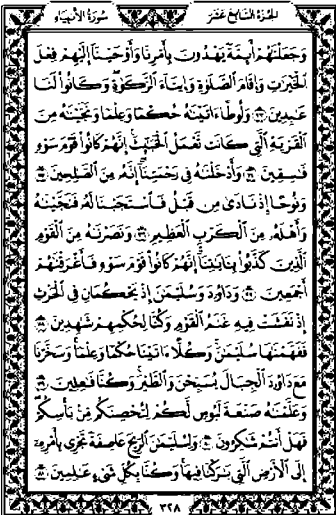 الجزء السابع عشر سورة الأنبياء
وَجَعَلْنَٰهُمْ أَئِمَّةً يَهْدُونَ بِأَمْرِنَا وَأَوْحَيْنَا إِلَيْهِمْ فِعْلَ
ٱلْخَيْرَٰتِ وَإِقَامَ ٱلصَّلَوٰةِ وَإِيتَاءَ ٱلزَّكَوٰةِ وَكَانُوا۟ لَنَا
عَٰبِدِينَ ٧٣ وَلُوطًا ءَاتَيْنَٰهُ حُكْمًا وَعِلْمًا وَنَجَّيْنَٰهُ مِنَ
ٱلْقَرْيَةِ ٱلَّتِى كَانَت تَّعْمَلُ ٱلْخَبَٰٓئِثَ إِنَّهُمْ كَانُوا۟ قَوْمَ سَوْءٍ
فَٰسِقِينَ ٧٤ وَأَدْخَلْنَٰهُ فِى رَحْمَتِنَآ إِنَّهُۥ مِنَ ٱلصَّٰلِحِينَ ٧٥
وَنُوحًا إِذْ نَادَىٰ مِن قَبْلُ فَٱسْتَجَبْنَا لَهُۥ فَنَجَّيْنَٰهُ
وَأَهْلَهُۥ مِنَ ٱلْكَرْبِ ٱلْعَظِيمِ ٧٦ وَنَصَرْنَٰهُ مِنَ ٱلْقَوْمِ
ٱلَّذِينَ كَذَّبُوا۟ بِـَٔايَٰتِنَآ إِنَّهُمْ كَانُوا۟ قَوْمَ سَوْءٍ فَأَغْرَقْنَٰهُمْ
أَجْمَعِينَ ٧٧ وَدَاوُۥدَ وَسُلَيْمَٰنَ إِذْ يَحْكُمَانِ فِى ٱلْحَرْثِ
إِذْ نَفَشَتْ فِيهِ غَنَمُ ٱلْقَوْمِ وَكُنَّا لِحُكْمِهِمْ شَٰهِدِينَ ٧٨
فَفَهَّمْنَٰهَا سُلَيْمَٰنَ وَكُلًّا ءَاتَيْنَا حُكْمًا وَعِلْمًا وَسَخَّرْنَا
مَعَ دَاوُۥدَ ٱلْجِبَالَ يُسَبِّحْنَ وَٱلطَّيْرَ وَكُنَّا فَٰعِلِينَ ٧٩
وَعَلَّمْنَٰهُ صَنْعَةَ لَبُوسٍ لَّكُمْ لِتُحْصِنَكُم مِّنۢ بَأْسِكُمْ
فَهَلْ أَنتُمْ شَٰكِرُونَ ٨٠ وَلِسُلَيْمَٰنَ ٱلرِّيحَ عَاصِفَةً تَجْرِى بِأَمْرِهِۦٓ
إِلَى ٱلْأَرْضِ ٱلَّتِى بَٰرَكْنَا فِيهَا وَكُنَّا بِكُلِّ شَىْءٍ عَٰلِمِينَ ٨١
٣٢٨